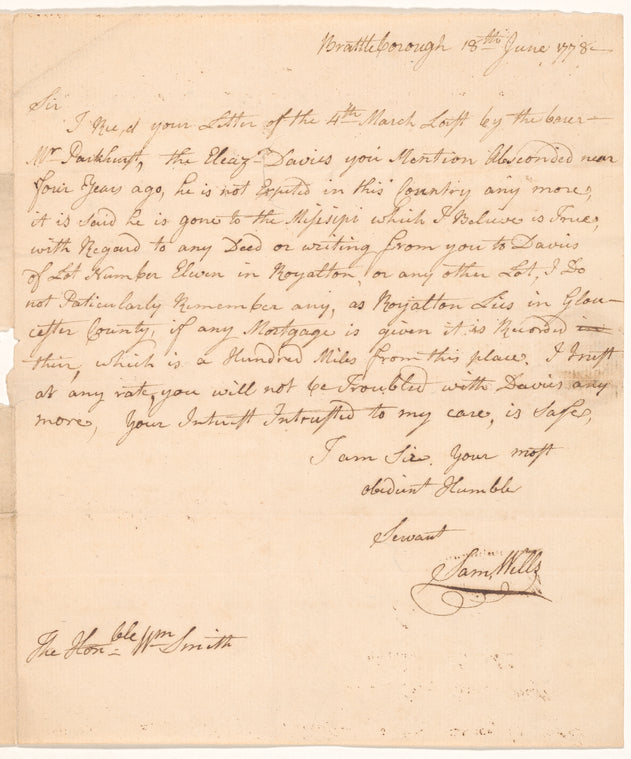 Brattleborough 18th June 1778
Sir
I Rec,d your Letter of the 4th March Last by the barer
Mr Parkhurst, the Eleazr Davies you Mention Absconded near
four Years ago, he is not Expected in this Country any more,
it is said he is gone to the Misisipi which I Believe is True,
with Regard to any Deed or writing from you to Davies
of Lot Number Eleven in Royalton, or any other Lot, I Do
not Paticularly Remember any, as Royalton Lies in Glou-
cester County, if any Mortgage is given it is Recorded in
thier, which is a Hundred Miles from this place, I trust
at any rate, you will not be Troubled with Davies any
more, Your Interest Intrusted to my care, is safe,
I am Sir Your most
obedient Humble
Servant
Sam Wells
The Honble Wm Smith